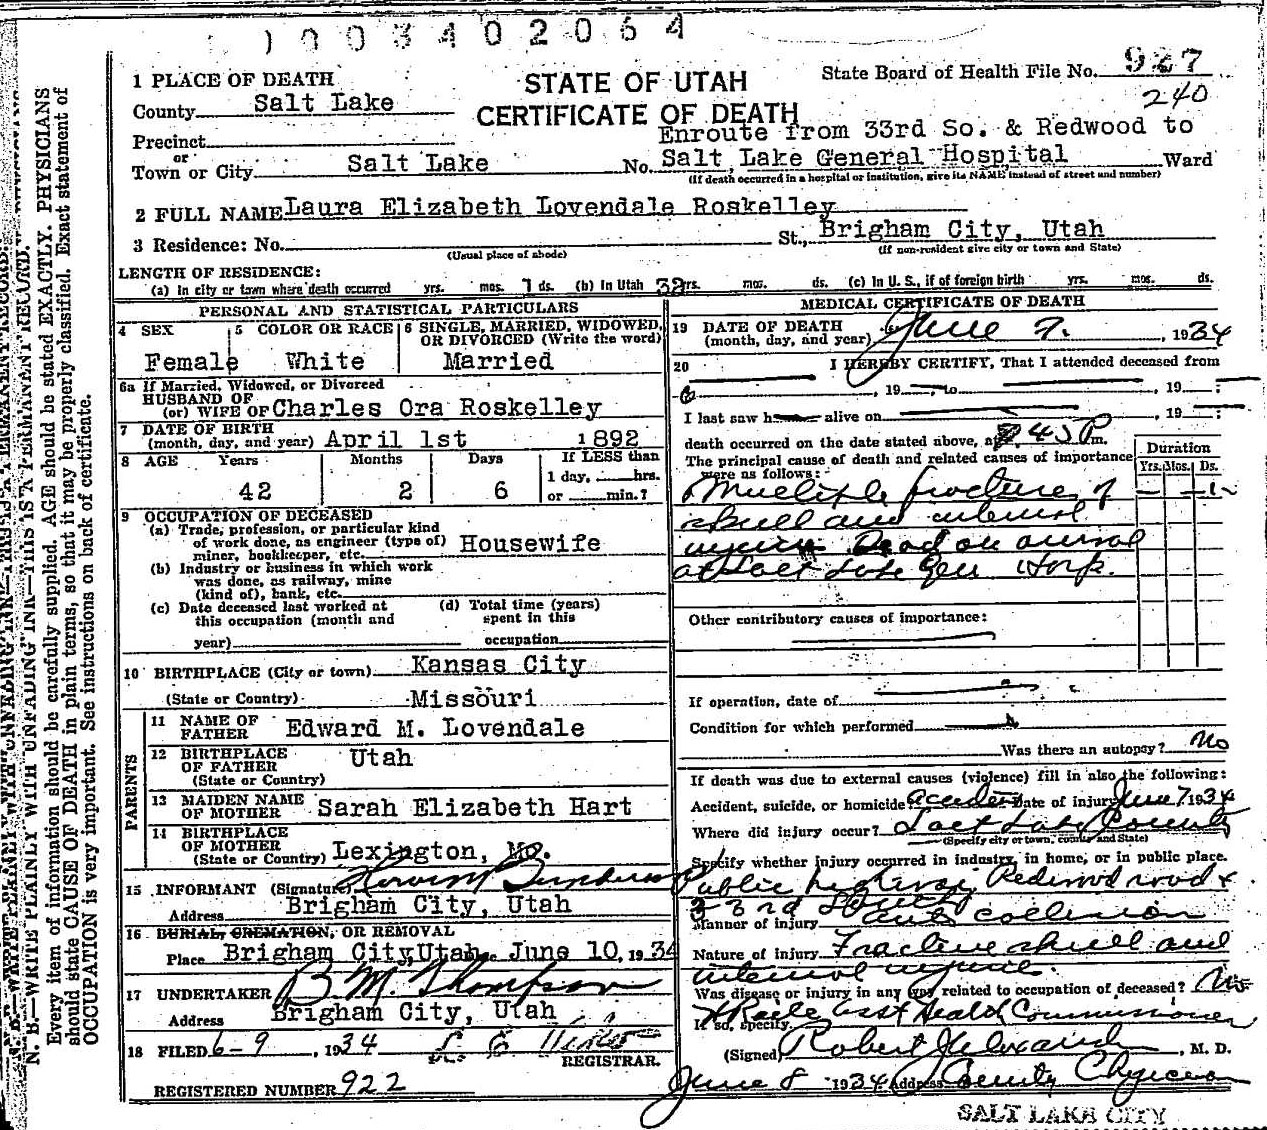 1003402064
1 PLACE OF DEATH
STATE OF UTAH
CERTIFICATE OF DEATH
State Board of Health File No. 927
240
County Salt Lake
Precinct
or
Town or City Salt Lake
Enroute from 33rd So. & Redwood to
No. Salt Lake General Hospital Ward
(If death occurred in a hospital or institution, give its NAME instead of street and number)
2 FULL NAME Laura Elizabeth Lovendale Roskelley
3 Residence: No. St., Brigham City, Utah
(Usual place of abode) (If non-resident give city or town and State)
LENGTH OF RESIDENCE:
(a) In city or town where death occurred yrs. mos. 1 ds. (b) In Utah 32 yrs. mos. ds. (c) In U. S., if of foreign birth yrs. mos. ds.
PERSONAL AND STATISTICAL PARTICULARS
4 SEX 5 COLOR OR RACE 6 SINGLE, MARRIED, WIDOWED, OR DIVORCED (Write the word)
Female White Married
6a If Married, Widowed, or Divorced
HUSBAND OF
(or) WIFE OF Charles Ora Roskelley
7 DATE OF BIRTH
(month, day, and year) April 1st 1892
8 AGE Years Months Days If LESS than
1 day, hrs.
42 2 6 or min.?
9 OCCUPATION OF DECEASED
(a) Trade, profession, or particular kind
of work done, as engineer (type of)
miner, bookkeeper, etc. Housewife
(b) Industry or business in which work
was done, as railway, mine
(kind of), bank, etc.
(c) Date deceased last worked at
this occupation (month and
year)
(d) Total time (years)
spent in this
occupation
10 BIRTHPLACE (City or town) Kansas City
(State or Country) Missouri
PARENTS
11 NAME OF
FATHER Edward M. Lovendale
12 BIRTHPLACE
OF FATHER Utah
(State or Country)
13 MAIDEN NAME
OF MOTHER Sarah Elizabeth Hart
14 BIRTHPLACE
OF MOTHER
(State or Country) Lexington, Mo.
15 INFORMANT (Signature)
Address Brigham City, Utah
16 BURIAL, CREMATION, OR REMOVAL
Place Brigham City, Utah June 10, 1934
17 UNDERTAKER B. M. Thompson
Address Brigham City, Utah
18 FILED 6-9, 1934
REGISTRAR.
REGISTERED NUMBER 922
MEDICAL CERTIFICATE OF DEATH
19 DATE OF DEATH
(month, day, and year) June 7. 1934
20 I HEREBY CERTIFY, That I attended deceased from
, 19 to , 19 :
I last saw h alive on , 19 :
death occurred on the date stated above, at 45 P m.
The principal cause of death and related causes of importance
were as follows:
Duration
Yrs. Mos. Ds.
Multiple fracture of 1
skull and internal
injuries Dead on arrival
at Salt Lake Gen Hosp.
Other contributory causes of importance:
If operation, date of
Condition for which performed
Was there an autopsy? No
If death was due to external causes (violence) fill in also the following:
Accident, suicide, or homicide Accident Date of injury June 7 1934
Where did injury occur? Salt Lake County
(Specify city or town, county and State)
Specify whether injury occurred in industry, in home, or in public place.
Public highway Redwood road &
33rd South
Manner of injury auto collision
Nature of injury Fracture skull and
internal injuries.
Was disease or injury in any way related to occupation of deceased? No
If so, specify
Asst Health Commissioner
(Signed) Robert J Alexander, M. D.
June 8 1934 Address County Physician
SALT LAKE CITY
N. B.—WRITE PLAINLY WITH UNFADING INK—THIS IS A PERMANENT RECORD.
Every item of information should be carefully supplied. AGE should be stated EXACTLY. PHYSICIANS
should state CAUSE OF DEATH in plain terms, so that it may be properly classified. Exact statement of
OCCUPATION is very important. See instructions on back of certificate.